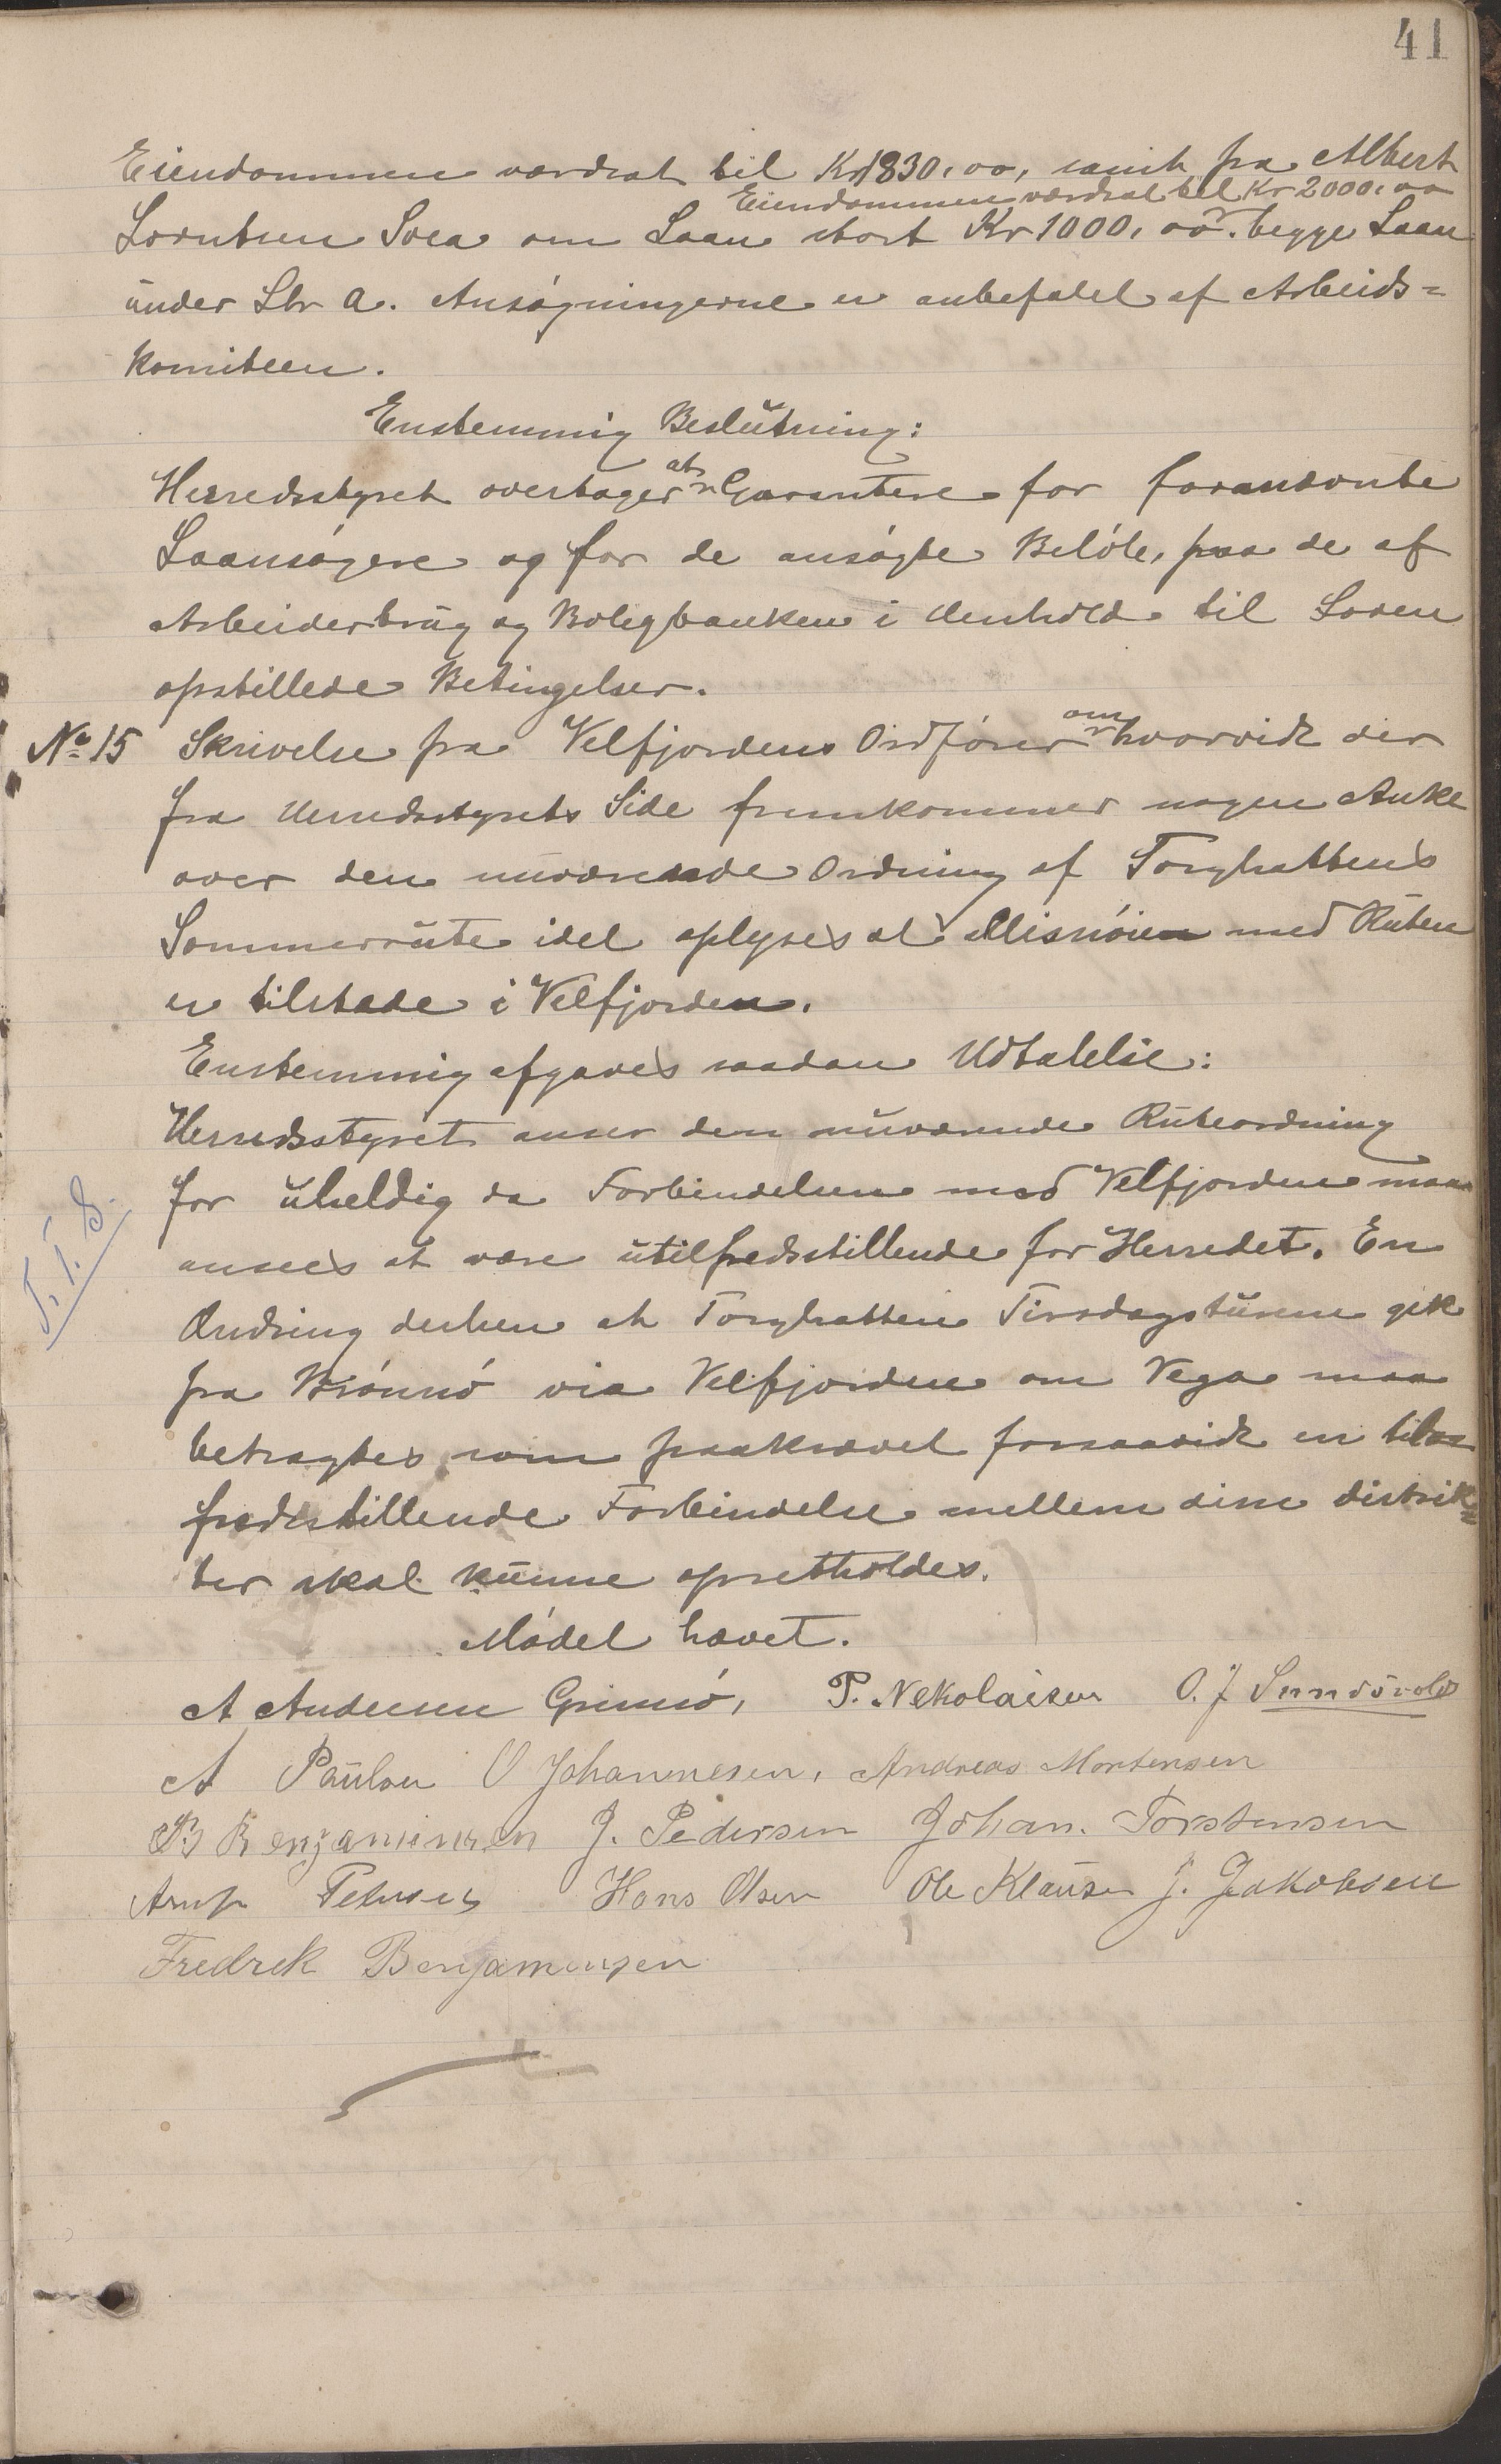 41
Eiendommen værdsat til Kr 1830,00, samt fra Albert
Eiendommen værdsat til Kr 2000,00
Lorntsen Svea om Laan stort Kr 1000,00. begge Laan
under Lbr a. Ansøgningerne er anbefalet af Arbeids-
komiteen.
Enstemmig Beslutning:
Herredsstyret overtager at Garantere for forannævnte
Laansøgere og for de ansøgte Beløb, paa de af
Arbeiderbrug og Boligbanken i Henhold til Loven
opstillede Betingelser.
No 15 Skrivelse fra Velfjordens Ordfører om hvorvidt der
fra Herredsstyrets Side fremkommer nogen Anke
over den nuværende Ordning af Torghattens
Sommerrute idet oplyses at Misnøie med Ruten
er tilstede i Velfjorden.
Enstemmig afgaves saadan Udtalelse:
Herredsstyret anser den nuværende Ruteordning
for uheldig da Forbindelsen med Velfjorden maa
ansees at være utilfredsstillende for Herredet. En
T.T.S.
Ændring derhen at Torghatten Tirsdagsturene gik
fra Brønnø via Velfjorden om Vega maa
betragtes som paakrævet forsaavidt en til-
fredsstillende Forbindelse mellem disse distrik-
ter skal kunne opretholdes.
Mødet hævet.
A Andersen Grimsø, P. Nekolaisen O. J Sundsvold
A Paulsen O Johannesen, Andreas Mortensen
B Benjaminsen J. Pedersen Johan. Torstensen
Petersen Hans Olsen Ole Klausen J. Jakobsen
Fredrek Benjamensen